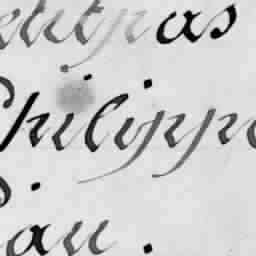 petitpas
Philippe
Piau.